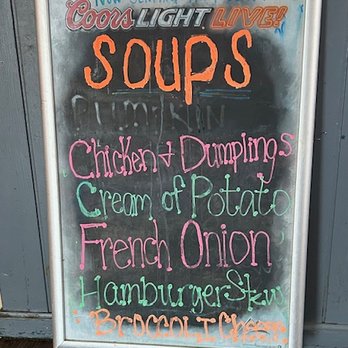 Coors LIGHT LIVE!
SOUPS
PUMPKIN
Chicken & Dumplings
Cream of Potato
French Onion
Hamburger Stew
BROCCOLI Cheese